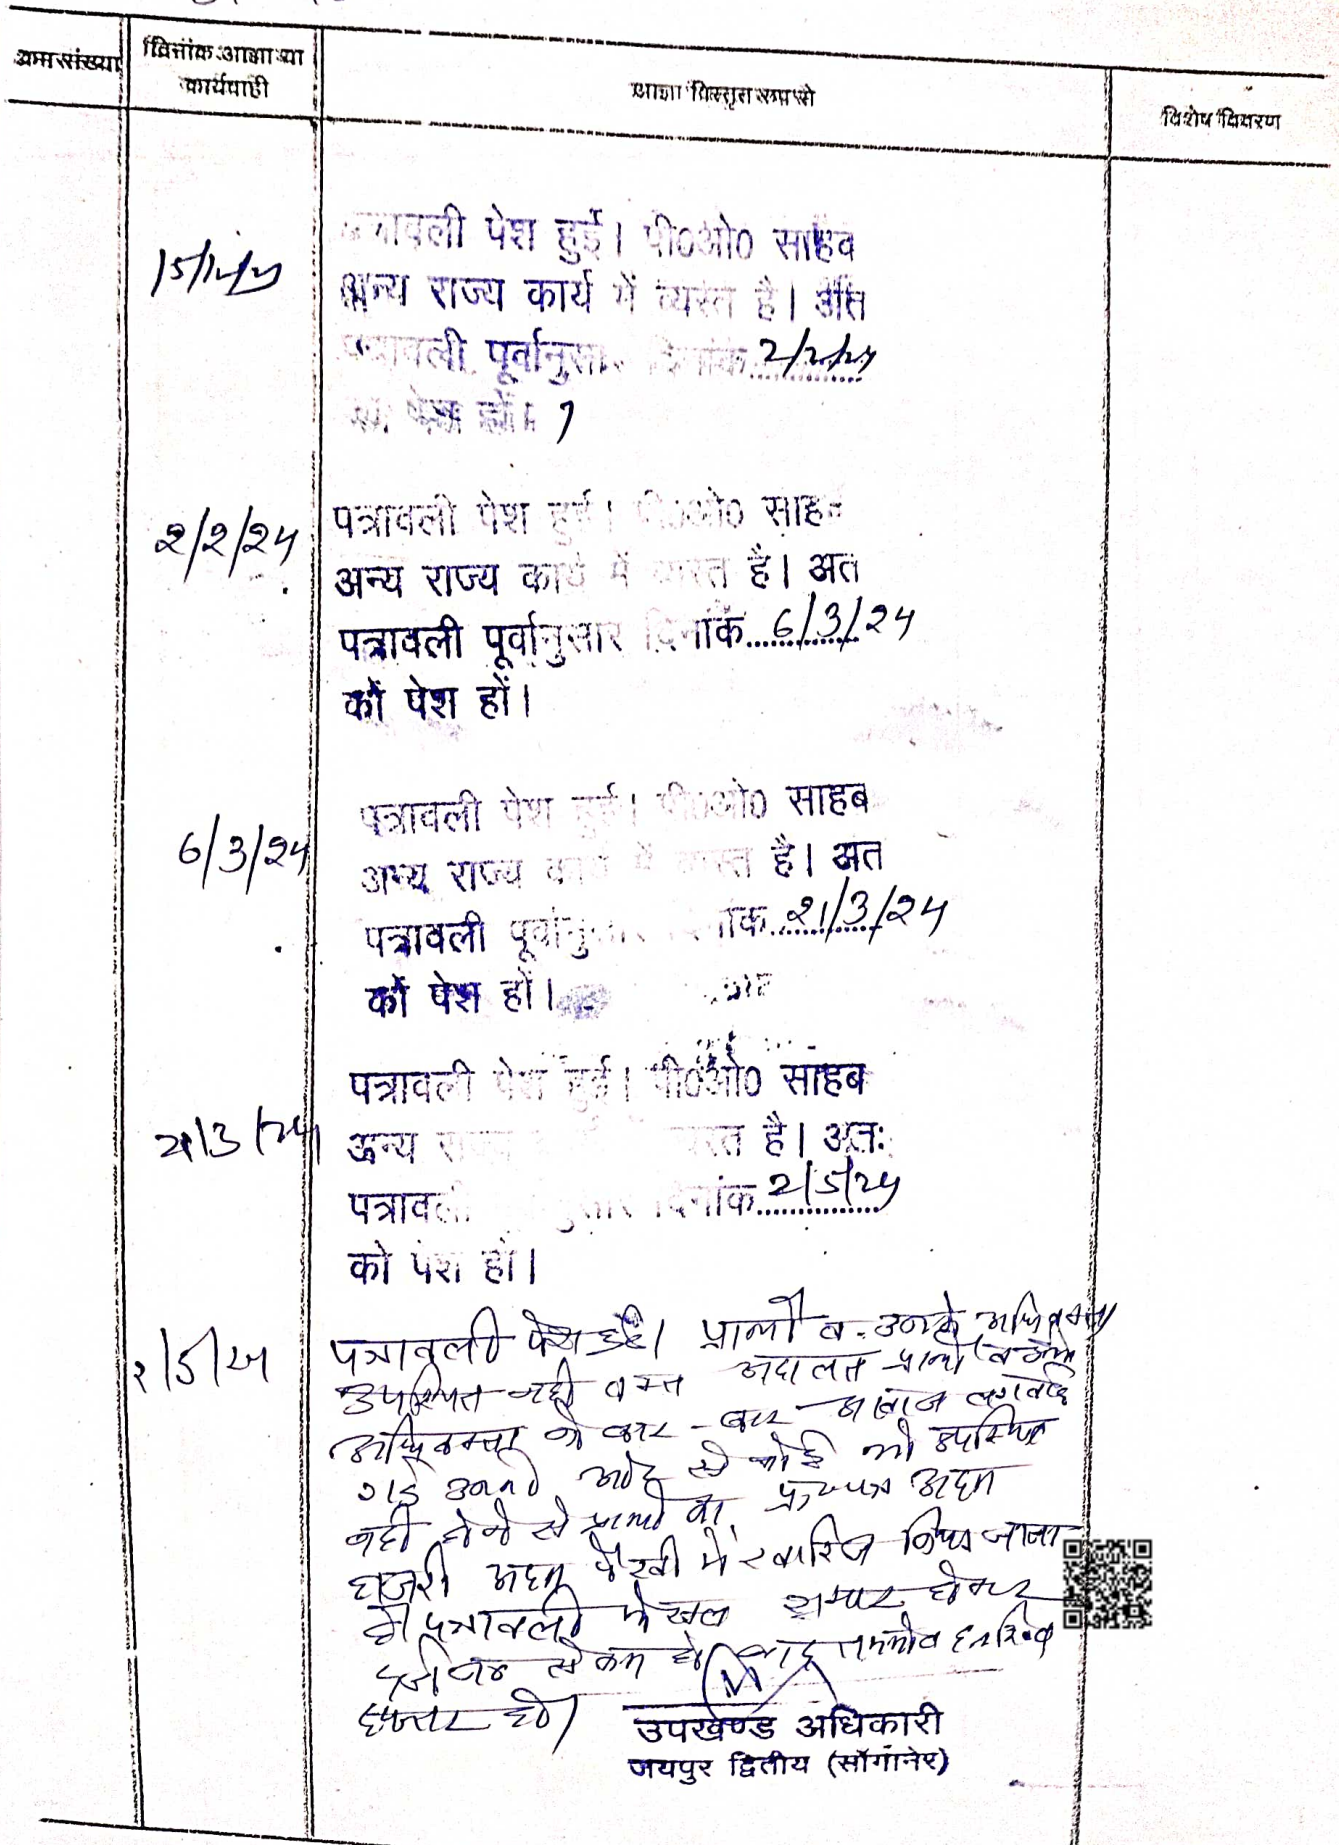 क्रम संख्या
दिनांक आज्ञा या
कार्यवाही
आज्ञा विस्तृत रूप से
विशेष विवरण
पत्रावली पेश हुई। पी०ओ० साहब
अन्य राज्य कार्य में व्यस्त है। अत
पत्रावली पूर्वानुसार दिनांक 2/2/24
को पेश हों।
2/2/24
पत्रावली पेश हुई। पी०ओ० साहब
अन्य राज्य कार्य में व्यस्त है। अत
पत्रावली पूर्वानुसार दिनांक 6/3/24
कों पेश हों।
6/3/24
पत्रावली पेश हुई। पी०ओ० साहब
अन्य राज्य कार्य में व्यस्त है। अत
पत्रावली पूर्वानुसार दिनांक 21/3/24
कों पेश हों।
21/3/24
पत्रावली पेश हुई। पी०ओ० साहब
अन्य राज्य कार्य में व्यस्त है। अतः
पत्रावली पूर्वानुसार दिनांक 2/5/24
को पेश हों।
2/5/24
पत्रावली पेश हुई। प्रार्थी व उनके अधिवक्ता
उपस्थित नहीं वक्त अदालत प्रार्थी व उनके
अधिवक्ता को बार-बार आवाज लगवाई
गई उनकी ओर से कोई भी उपस्थित
नही होने से प्रार्थी का प्रा०पत्र अदम
हाजरी अदम पैरवी में खारिज किया जाता
है। पत्रावली फैसल शुमार होकर
नम्बर से कम हो बाद तकमील दाखिल
दफ्तर हो।
उपखण्ड अधिकारी
जयपुर द्वितीय (सॉगानेर)